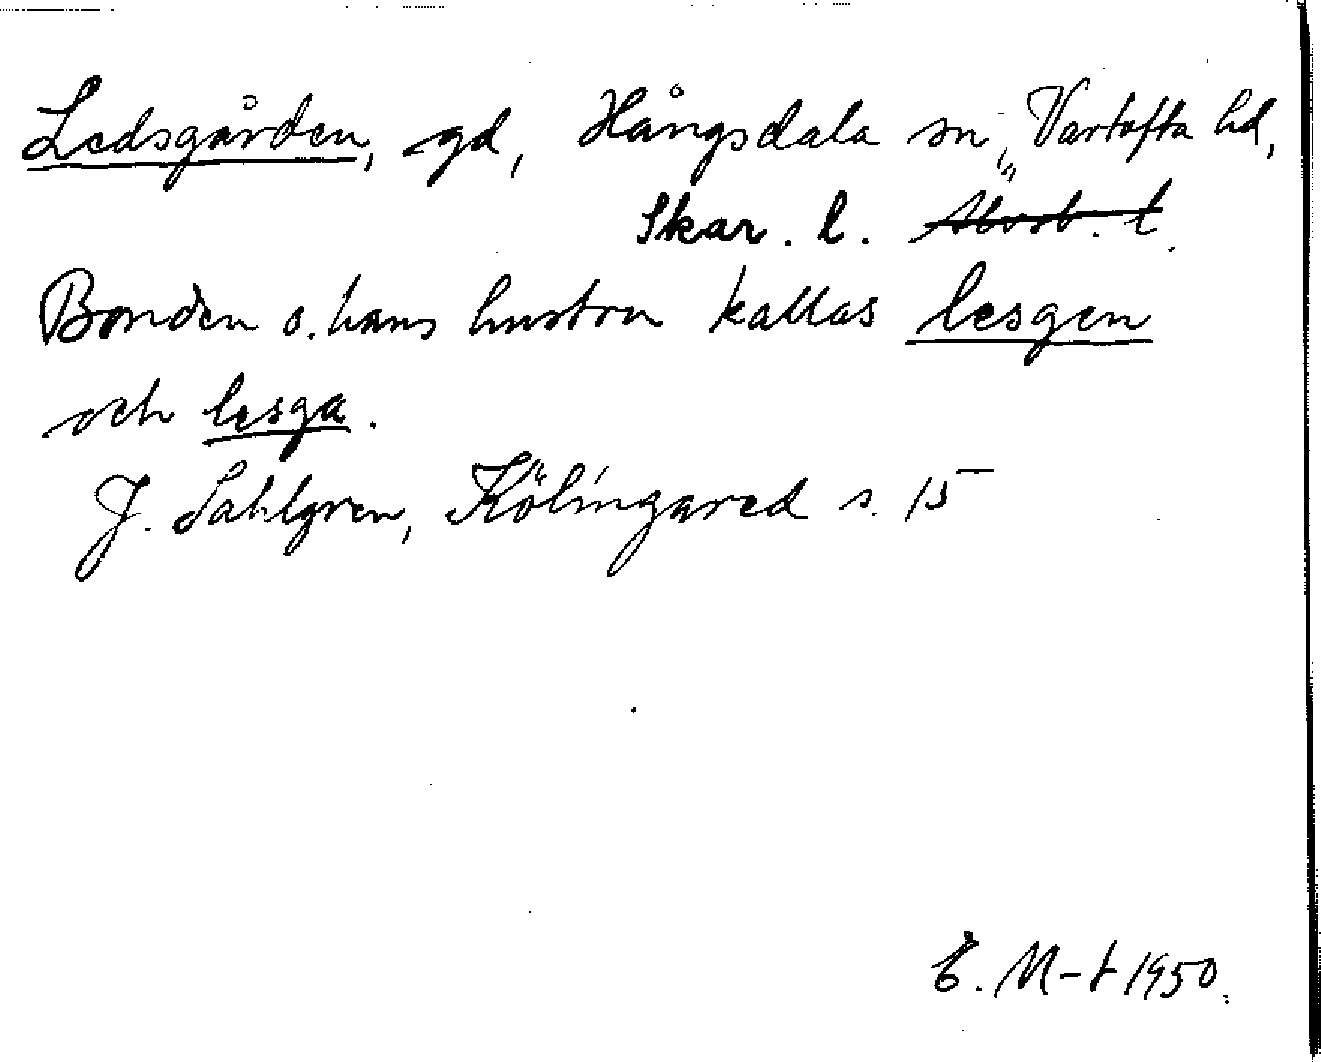 Ledsgården, gd, Hångsdala sn, Vartofta hd,
Skar. l. Älvsb. l.
Bonden o. hans hustru kallas lesgen
och lesga.
J. Sahlgren, Kölingared s. 15
E. M-t 1950.